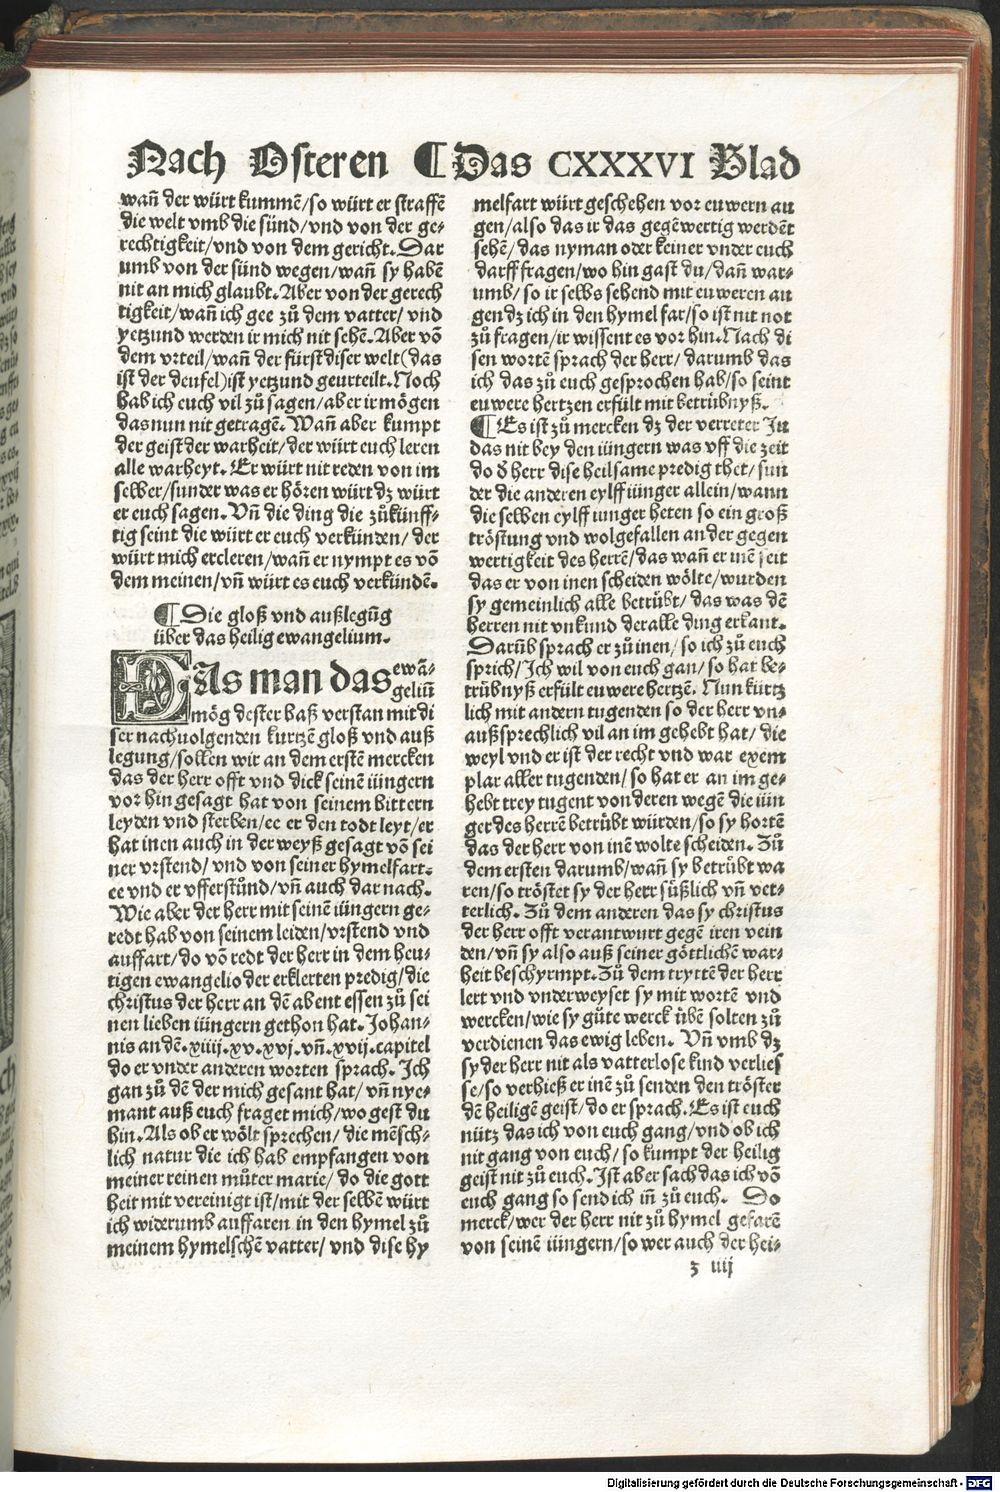 Nach Osteren ¶ Das CXXXVI Blad
wañ der würt kummẽ/so würt er straffẽ
die welt vmb die sünd/vnd von der ge⸗
rechtigkeit/vnd von dem gericht. Dar
umb von der sünd wegen/wañ sy habẽ
nit an mich glaubt. Aber von der gerech
tigkeit/wañ ich gee zů dem vatter/ vnd
yetzund werden ir mich nit sehẽ. Aber võ
dem vrteil/wañ der fürst diser welt(das
ist der deufel)ist yetzund geurteilt. Noch
hab ich euch vil zů sagen/aber ir mögen
das nun nit getragẽ. Wañ aber kumpt
der geist der warheit/der würt euch leren
alle warheyt. Er würt nit reden von im
selber/sunder was er hören würt dz würt
er euch sagen. Vñ die ding die zůkünff⸗
tig seint die würt er euch verkünden/ der
würt mich ercleren/wañ er nympt es võ
dem meinen/vñ würt es euch verkündẽ.
¶ Die gloß vnd außlegũg
über das heilig ewangelium.
DAs man das ewã⸗
geliũ
mög dester baß verstan mit di
ser nachuolgenden kurtzẽ gloß vnd auß
legung/sollen wir an dem erstẽ mercken
das der herr offt vnd dick seinẽ iüngern
vor hin gesagt hat von seinem bittern
leyden vnd sterben/ee er den todt leyt/er
hat inen auch in der weyß gesagt võ sei
ner vrstend/ vnd von seiner hymelfart.
ee vnd er vfferstůnd/vñ auch dar nach.
Wie aber der herr mit seinẽ iüngern ge⸗
redt hab von seinem leiden/vrstend vnd
auffart/do võ redt der herr in dem heu⸗
tigen ewangelio der erklerten predig/die
christus der herr an dẽ abent essen zů sei
nen lieben iüngern gethon hat. Johan⸗
nis an dẽ.xiiij.xv.xvj.vñ.xvij.capitel
do er vnder anderen worten sprach. Ich
gan zů dẽ der mich gesant hat/ vñ nye⸗
mant auß euch fraget mich/wo gest du
hin. Als ob er wölt sprechen/ die mẽsch⸗
lich natur die ich hab empfangen von
meiner reinen můter marie/ do die gott
heit mit vereinigt ist/mit der selbẽ würt
ich widerumb auffaren in den hymel zů
meinem hymelschẽ vatter/ vnd dise hy
melfart würt geschehen vor euwern au
gen/also das ir das gegẽwertig werdẽt
sehẽ/ das nyman oder keiner vnder euch
darff fragen/wo hin gast du/dañ war⸗
umb/ so ir selbs sehend mit euweren au
gen dz ich in den hymel far/so ist nit not
zů fragen/ir wissent es vor hin. Nach di
sen wortẽ sprach der herr/ darumb das
ich das zů euch gesprochen hab/so seint
euwere hertzen erfült mit betrübnyß.
¶ Es ist zů mercken dz der verreter Ju
das nit bey den iüngern was vff die zeit
do d herr dise heilsame predig thet/ sun
der die anderen eylff iünger allein/wann
die selben eylff iunger heten so ein groß
tröstung vnd wolgefallen an der gegen
wertigkeit des herrẽ/das wañ er inẽ seit
das er von inen scheiden wölte/wurden
sy gemeinlich alle betrübt/ das was dẽ
herren nit vnkund der alle ding erkant.
Darũb sprach er zů inen/ so ich zů euch
sprich/Ich wil von euch gan/ so hat be⸗
trübnyß erfült euwere hertzẽ. Nun kürtz
lich mit andern tugenden so der herr vn⸗
außsprechlich vil an im gehebt hat/ die
weyl vnd er ist der recht vnd war exem
plar aller tugenden/ so hat er an im ge⸗
hebt trey tugent von deren wegẽ die iün
ger des herrẽ betrübt würden/so sy hortẽ
das der herr von inẽ wolte scheiden. Zů
dem ersten darumb/wañ sy betrübt wa
ren/so tröstet sy der herr süßlich vñ vet⸗
terlich. Zů dem anderen das sy christus
der herr offt verantwurt gegẽ iren vein
den/vñ sy also auß seiner göttlichẽ war⸗
heit beschyrmpt. Zů dem tryttẽ der herr
lert vnd vnderweyset sy mit wortẽ vnd
wercken/wie sy gůte werck übẽ solten zů
verdienen das ewig leben. Vñ vmb dz
sy der herr nit als vatterlose kind verlies
se/so verhieß er inẽ zů senden den tröster
dẽ heiligẽ geist/do er sprach. Es ist euch
nütz das ich von euch gang/vnd ob ich
nit gang von euch/so kumpt der heilig
geist nit zů euch. Ist aber sach das ich võ
euch gang so send ich iñ zů euch. Do
merck/wer der herr nit zů hymel gefarẽ
von seinẽ iüngern/so wer auch der hei⸗
z iiij
Digitalisierung gefördert durch die Deutsche Forschungsgemeinschaft - DFG